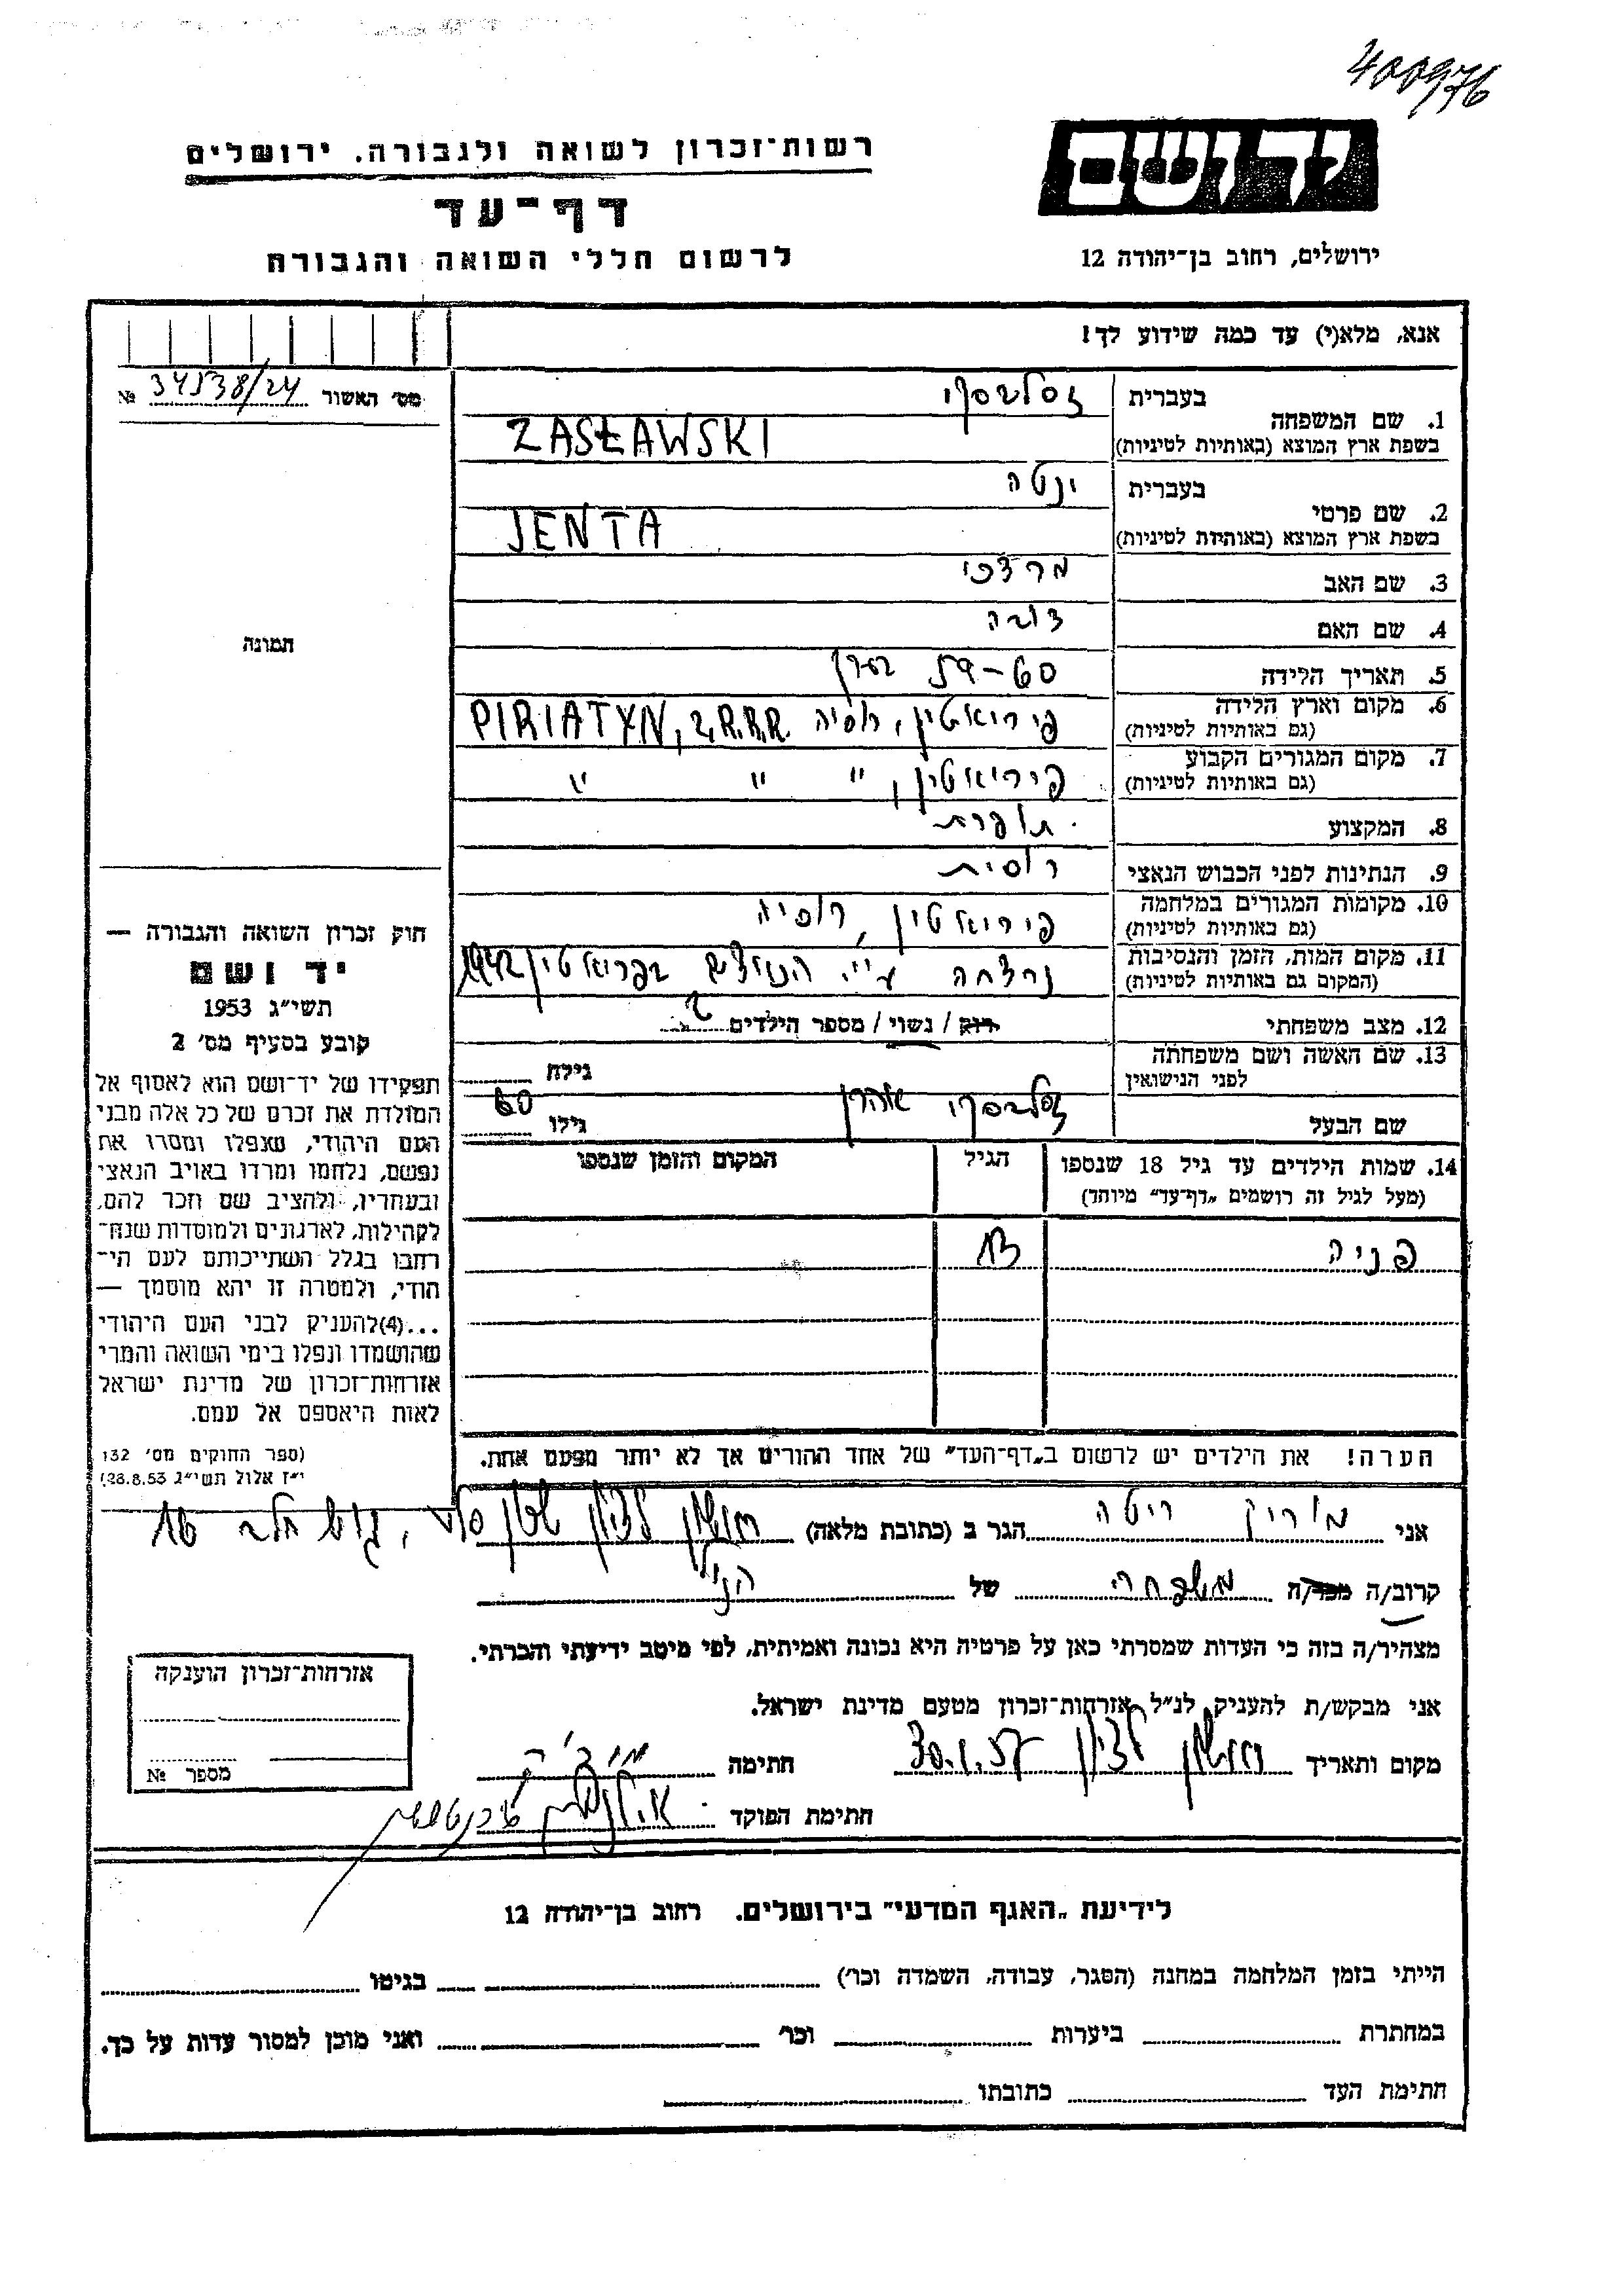 400976
רשות־זכרון לשואה ולגבורה. ירושלים
יד ושם
דף־עד
לרשום חללי השואה והגבורה
ירושלים, רחוב בן־יהודה 12
אנא, מלא(י) עד כמה שידוע לך!
מס' האשור 34538/24 №
1. שם המשפחה בעברית זסלבסקי
בשפת ארץ המוצא (באותיות לטיניות) ZASŁAWSKI
2. שם פרטי בעברית ינטה
בשפת ארץ המוצא (באותיות לטיניות) JENTA
3. שם האב מרדכי
4. שם האם
5. תאריך הלידה 59-60 בערך
6. מקום וארץ הלידה פיריאטין, רוסיה PIRIATYN, Z.R.R.R.
(גם באותיות לטיניות)
7. מקום המגורים הקבוע פיריאטין, " " "
(גם באותיות לטיניות)
8. המקצוע תופרת
9. הנתינות לפני הכבוש הנאצי רוסית
10. מקומות המגורים במלחמה פיריאטין, רוסיה
(גם באותיות לטיניות)
11. מקום המות, הזמן והנסיבות נרצחה ע"י הנאצים בפריאטין 1942
(המקום גם באותיות לטיניות)
12. מצב משפחתי רוק / נשוי / מספר הילדים 2
13. שם האשה ושם משפחתה
לפני הנישואין גילה
שם הבעל זסלבסקי אהרן גילו 60
14. שמות הילדים עד גיל 18 שנספו הגיל המקום והזמן שנספו
(מעל לגיל זה רושמים „דף־עד" מיוחד)
פניה 13
הערה! את הילדים יש לרשום ב„דף־העד" של אחד ההורים אך לא יותר מפעם אחת.
תמונה
חוק זכרון השואה והגבורה —
יד ושם
תשי"ג 1953
קובע בסעיף מס' 2
תפקידו של יד־ושם הוא לאסוף אל
המולדת את זכרם של כל אלה מבני
העם היהודי, שנפלו ומסרו את
נפשם, נלחמו ומרדו באויב הנאצי
ובעוזריו, ולהציב שם וזכר להם,
לקהילות, לארגונים ולמוסדות שנח־
רבו בגלל השתייכותם לעם הי־
הודי, ולמטרה זו יהא מוסמך —
...(4)להעניק לבני העם היהודי
שהושמדו ונפלו בימי השואה והמרי
אזרחות־זכרון של מדינת ישראל
לאות היאספם אל עמם.
(ספר החוקים מס' 132
י"ז אלול תשי"ג 28.8.53)
אני מוריק ריטה הגר ב (כתובת מלאה) ראשון לציון שכון, גוש חלב 16
קרוב/ה מכר/ה משפחה של הנ"ל
מצהיר/ה בזה כי העדות שמסרתי כאן על פרטיה היא נכונה ואמיתית, לפי מיטב ידיעתי והכרתי.
אני מבקש/ת להעניק לנ"ל אזרחות־זכרון מטעם מדינת ישראל.
מקום ותאריך ראשון לציון 30.1.57 חתימה
חתימת הפוקד
אזרחות־זכרון הוענקה
מספר №
לידיעת „האגף המדעי" בירושלים. רחוב בן־יהודה 12
הייתי בזמן המלחמה במחנה (הסגר, עבודה, השמדה וכו') בגיטו
במחתרת ביערות וכו' ואני מוכן למסור עדות על כך.
חתימת העד כתובתו